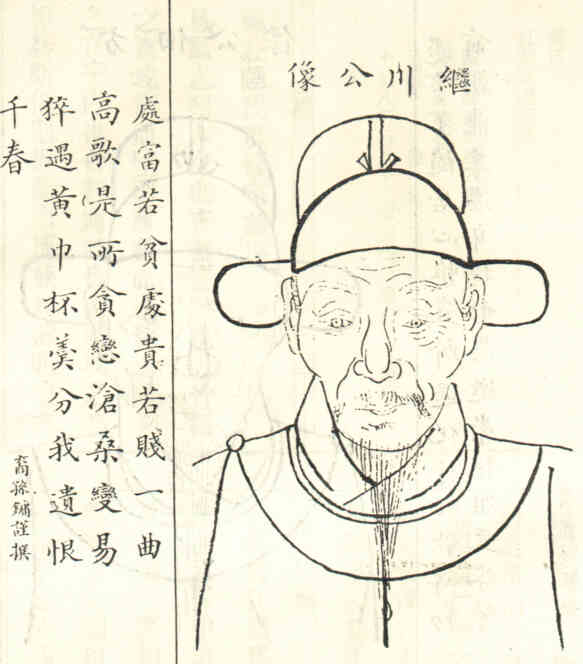 繼川公像
處富若貧處貴若賤一曲
高歌是所貪戀滄桑變易
猝遇黃巾杯羹分我遺恨
千春
裔孫鏽謹撰